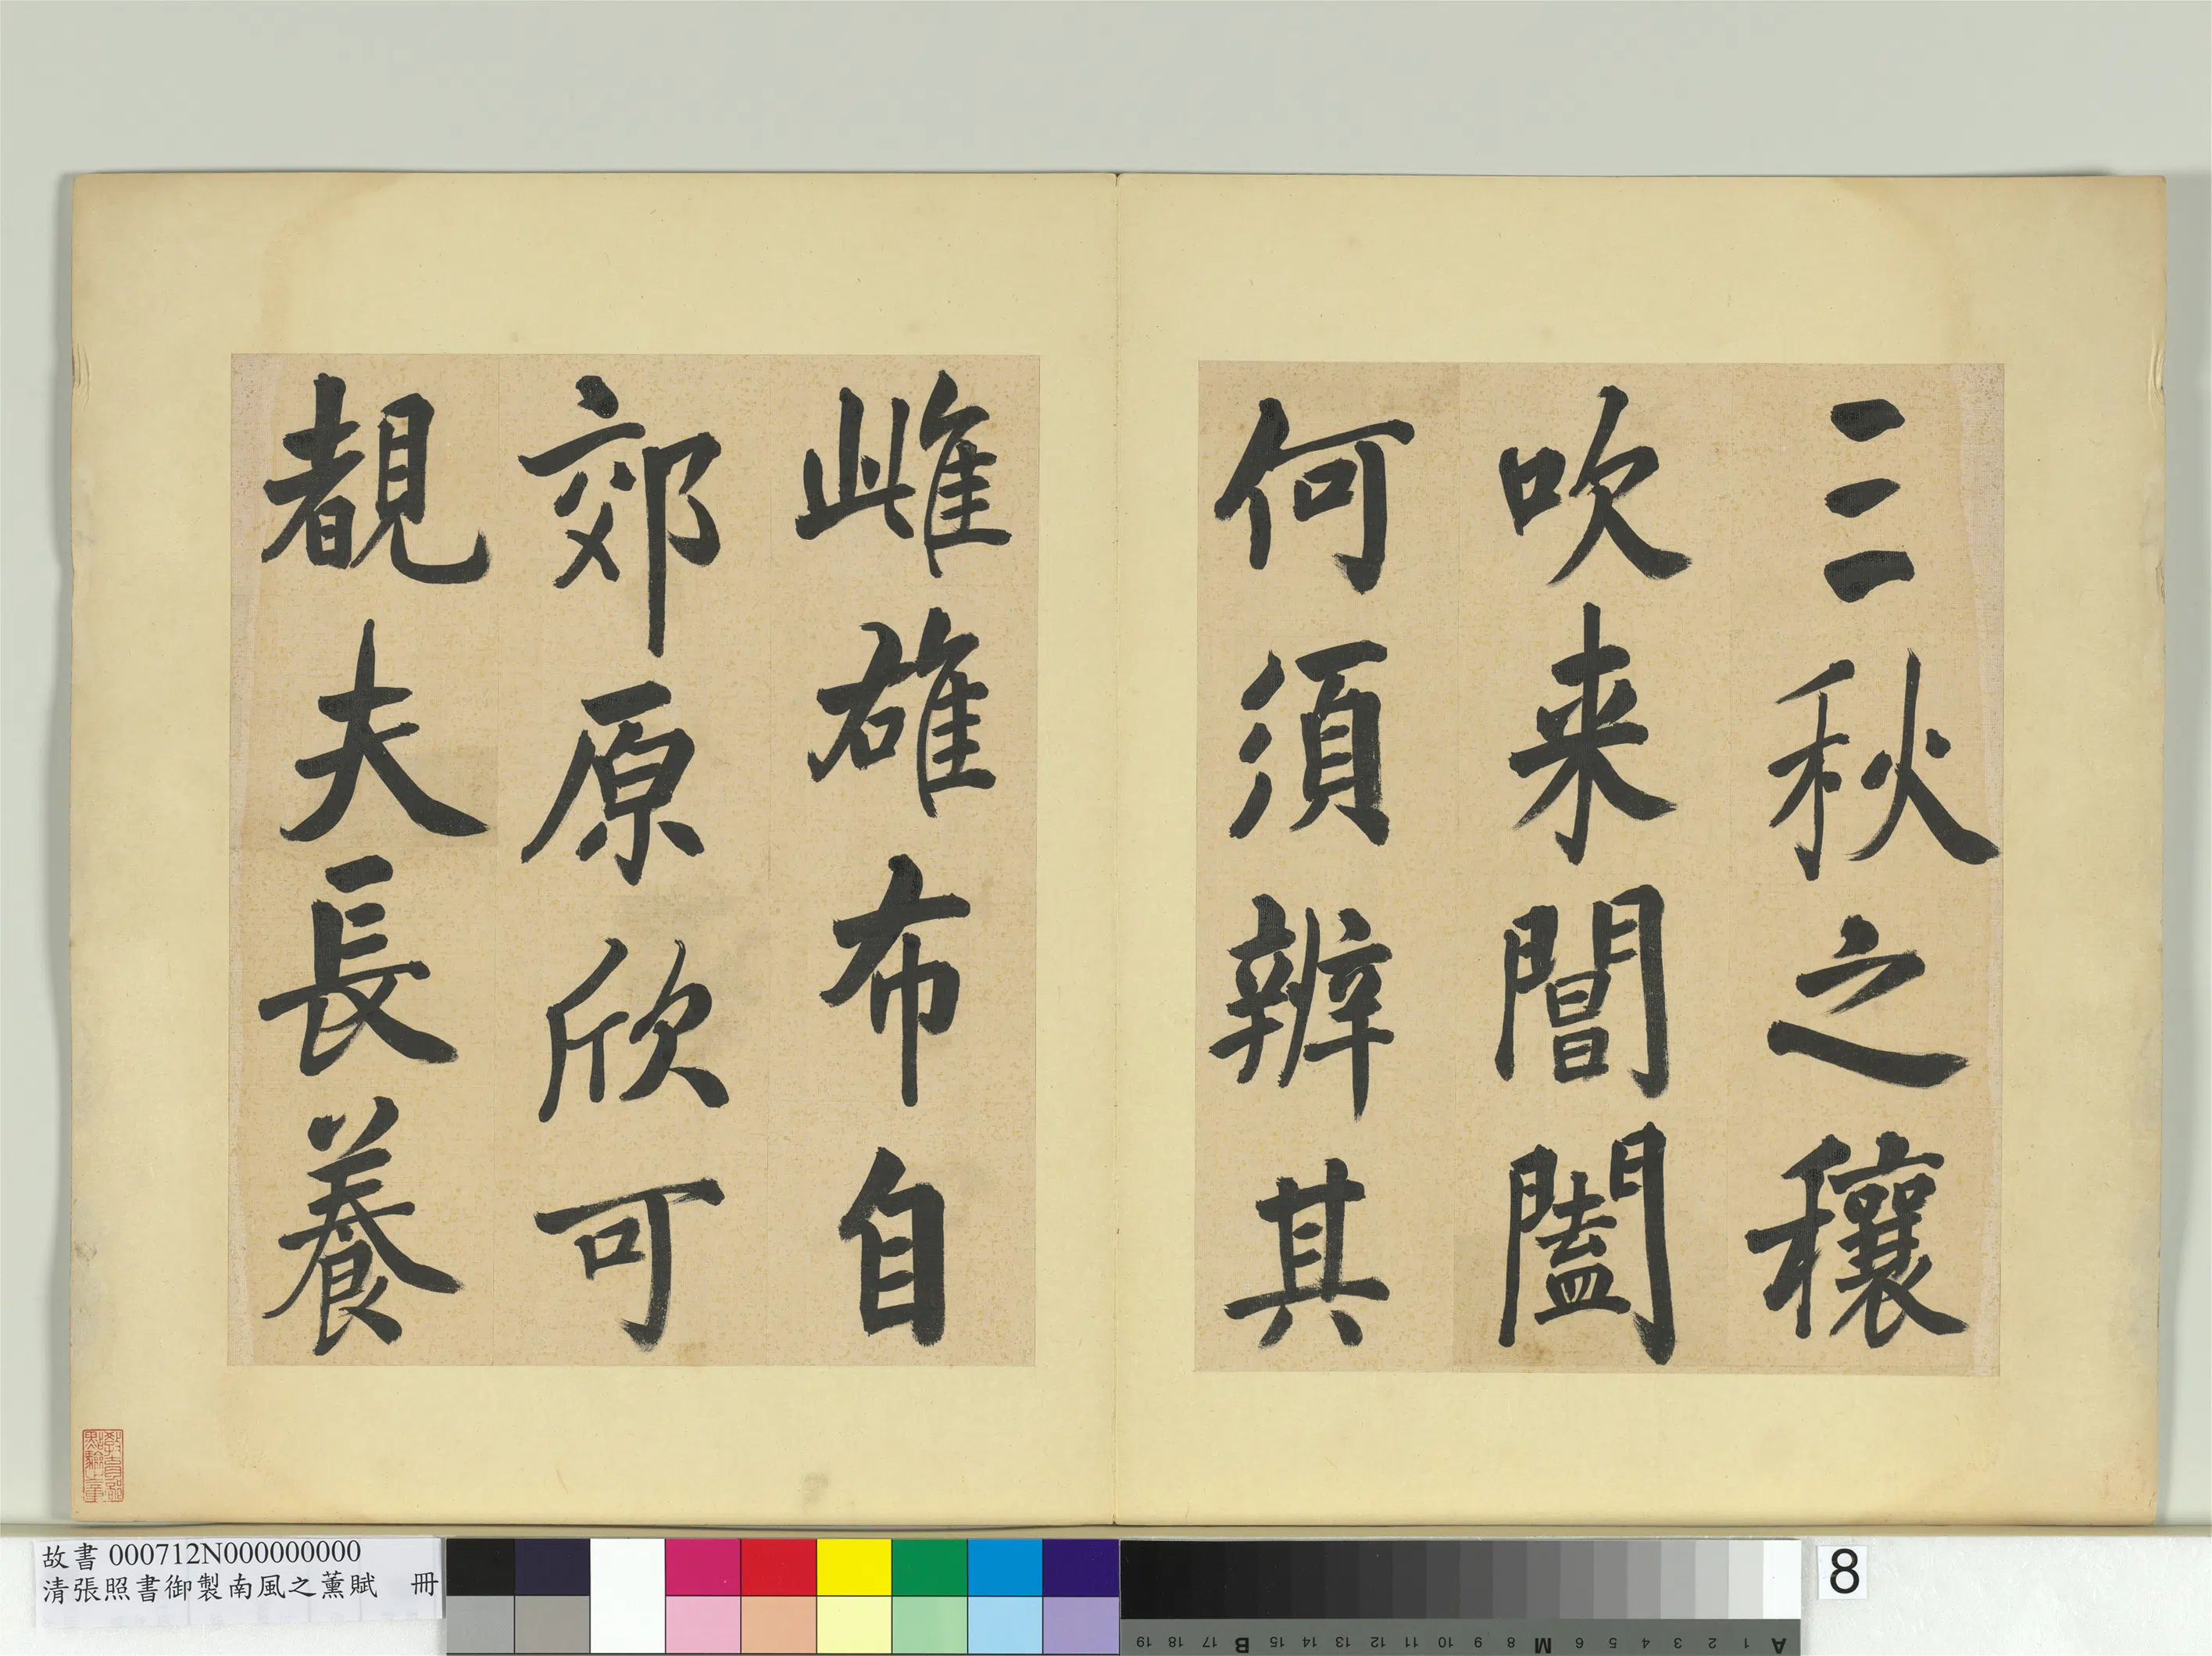 三秋之穰
吹来閶闔
何須辨其
雌雄布自
郊原欣可
覩夫長養
故書 000712N000000000
清張照書御製南風之薰賦 冊
8
19 18 17 B 15 14 13 12 11 10 9 8 M 6 5 4 3 2 1 A